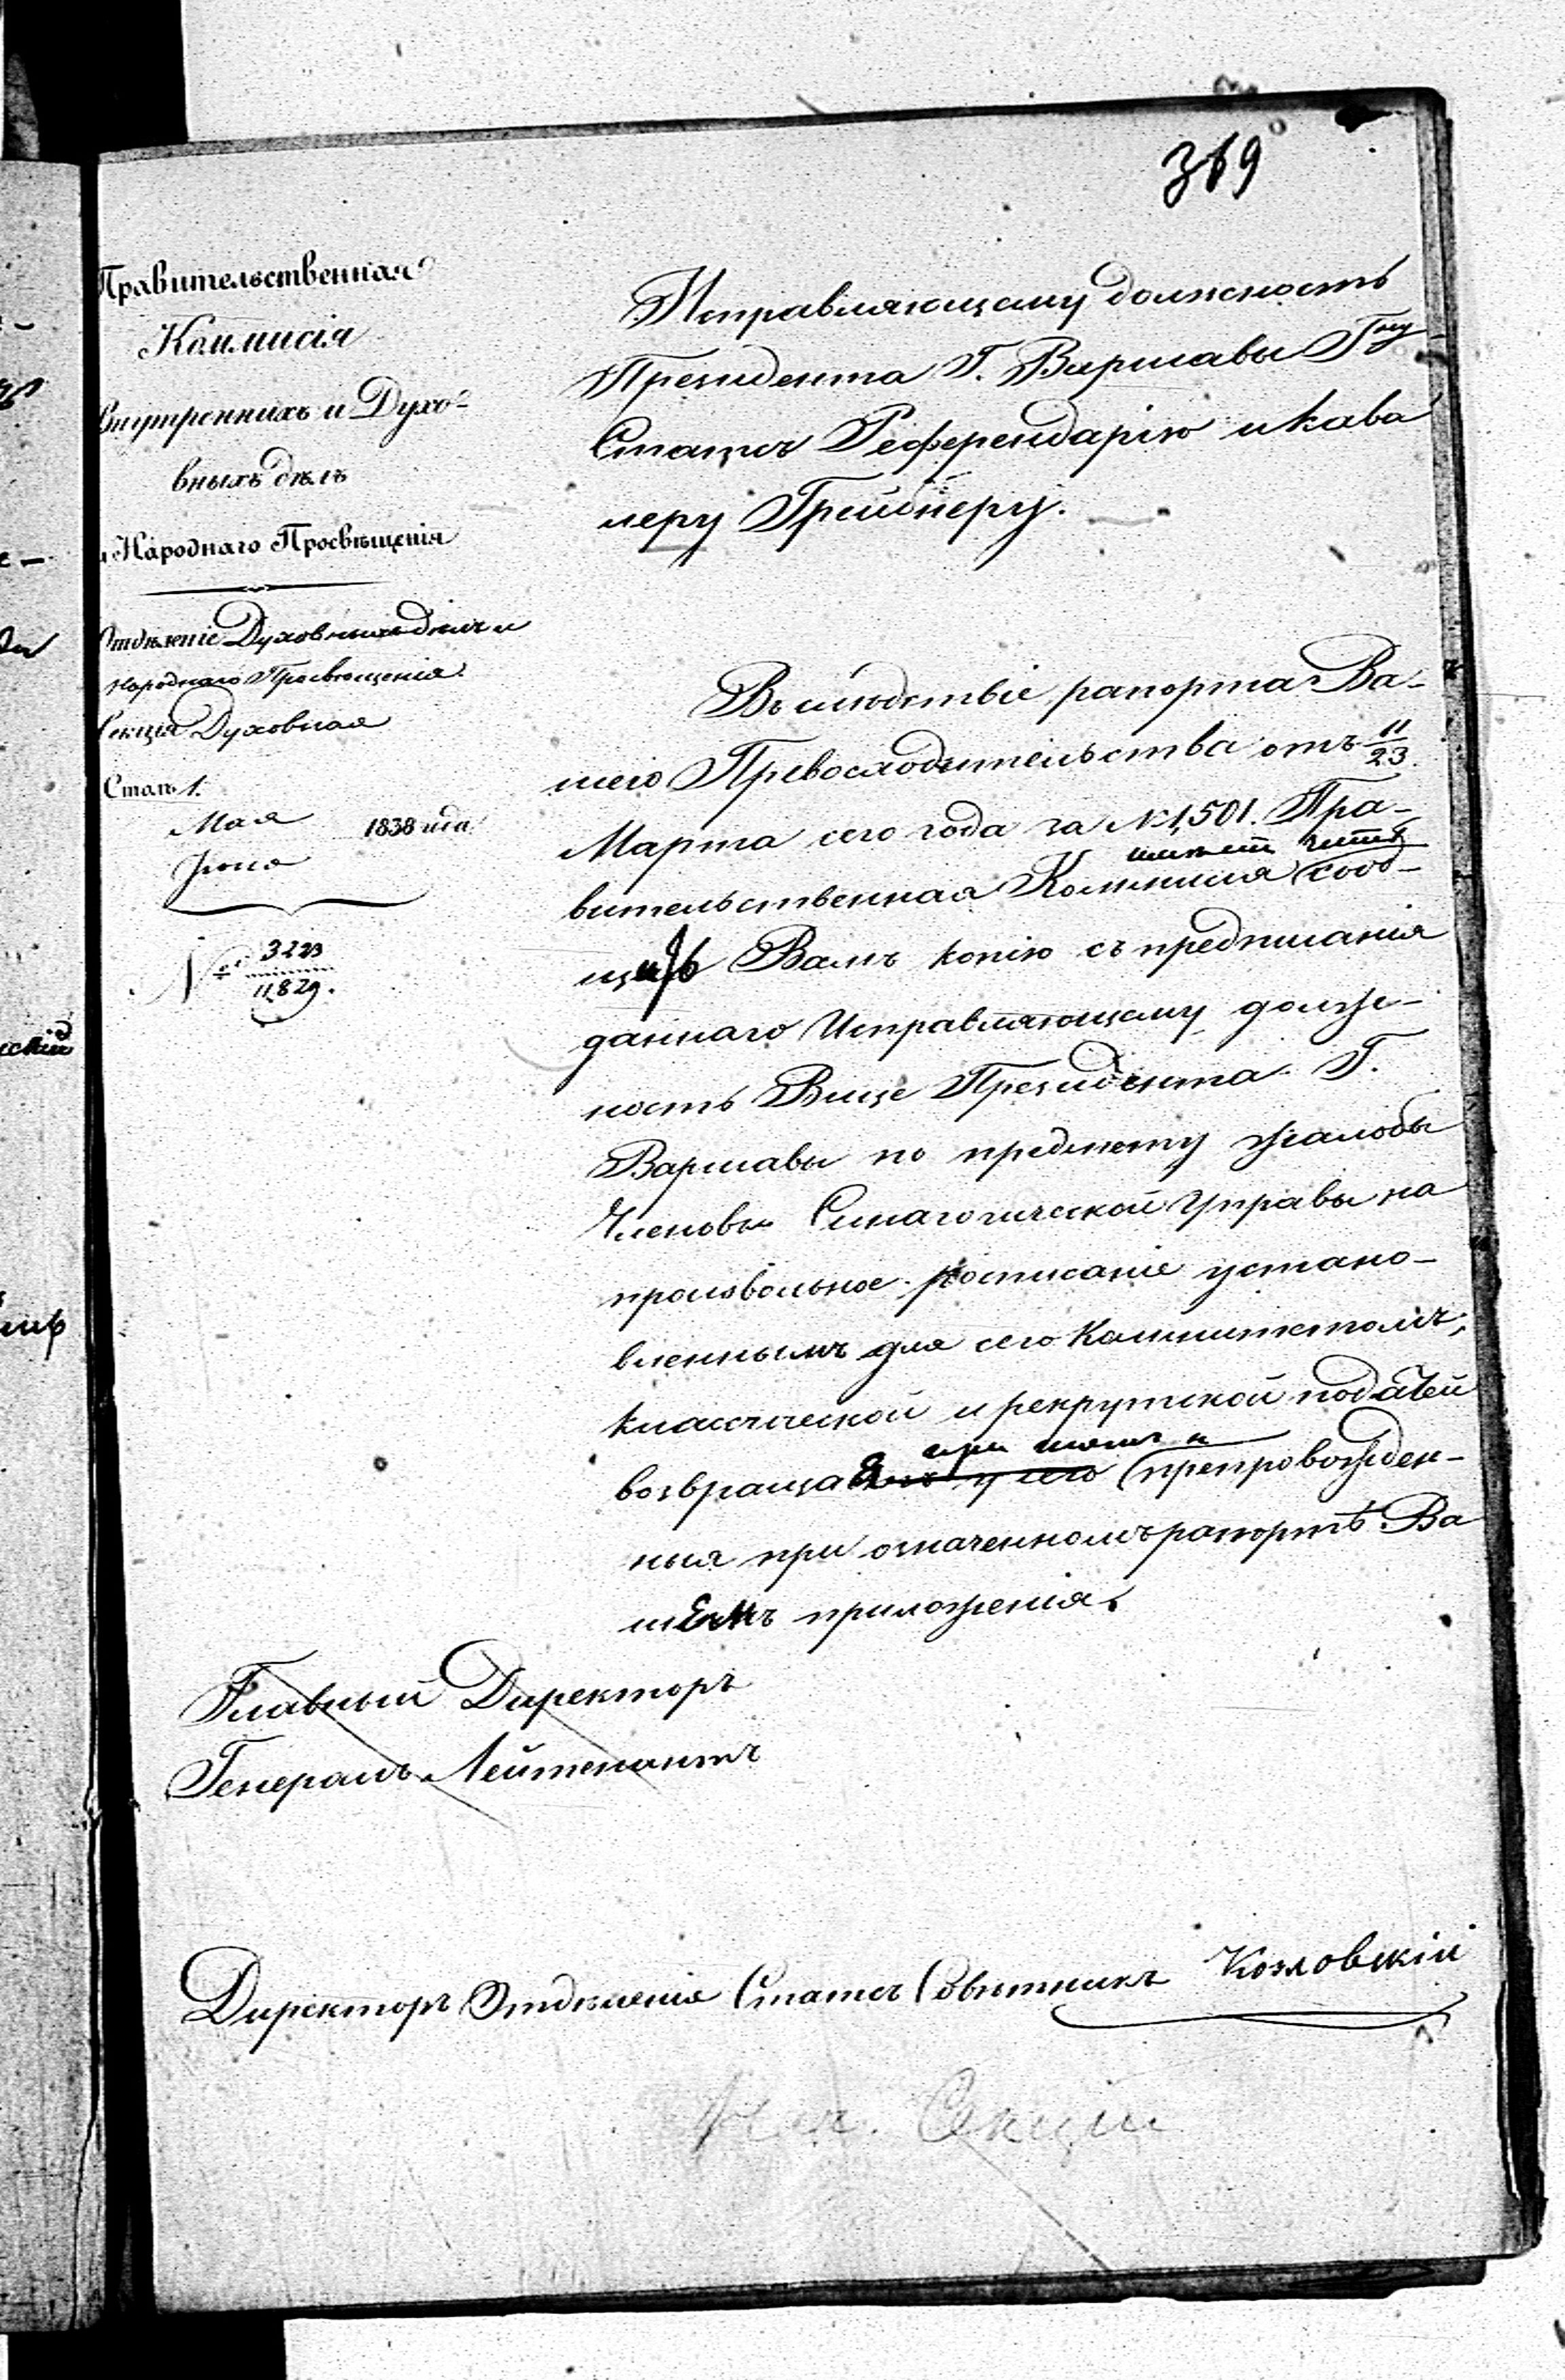 369
Правительственная
Коммисія
Внутреннихъ и Духо-
вныхъ дѣлъ
и Народнаго Просвѣщенія
Отдѣленіе Духовныхъ дѣлъ и
Народнаго Просвѣщенія
Секція Духовная
Столъ 1.
Мая
1838 года
Іюня
№ 3223
11,829.
Исправляющему должность
Президента Г. Варшавы Гну
Статсъ Референдарію и Кава
леру Грейбнеру.
Въ слѣдствіе рапорта Ва-
шего Превосходительства отъ 11/23
Марта сего года за № 1,501. Пра-
вительственная Коммисія сооб-
имѣетъ честь
щить Вамъ копію съ предписанія
даннаго Исправляющему долж-
ность Вице Президента Г.
Варшавы по предмету жалобы
Членовъ Синагогической Управы на
произвольное росписаніе устано-
вленнымъ для сего Коммитетомъ,
классической и рекрутской податей
возвращая у сего препровожден-
при томъ и
ныя при означенномъ рапортѣ Ва
шемъ приложенія.
Главный Директоръ
Генералъ Лейтенантъ
Директоръ Отдѣленія Статсъ Совѣтникъ Козловскій
Нач. Секціи